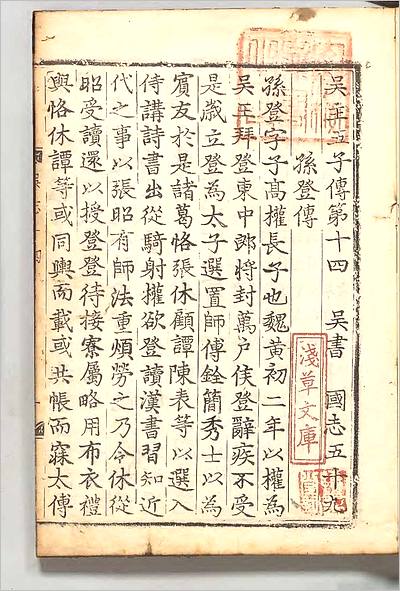 吳主五子傳第十四 吳書 國志五十九
孫登傳
孫登字子髙權長子也魏黄初二年以權為
吳王拜登東中郎將封萬户侯登辭疾不受
是歲立登為太子選置師傅銓簡秀士以為
賔友於是諸葛恪張休顧譚陳表等以選入
侍講詩書出從騎射權欲登讀漢書習知近
代之事以張昭有師法重煩勞之乃令休從
昭受讀還以授登登待接寮屬略用布衣禮
與恪休譚等或同輿而載或共帳而寐太傅
淺草文庫
吳志